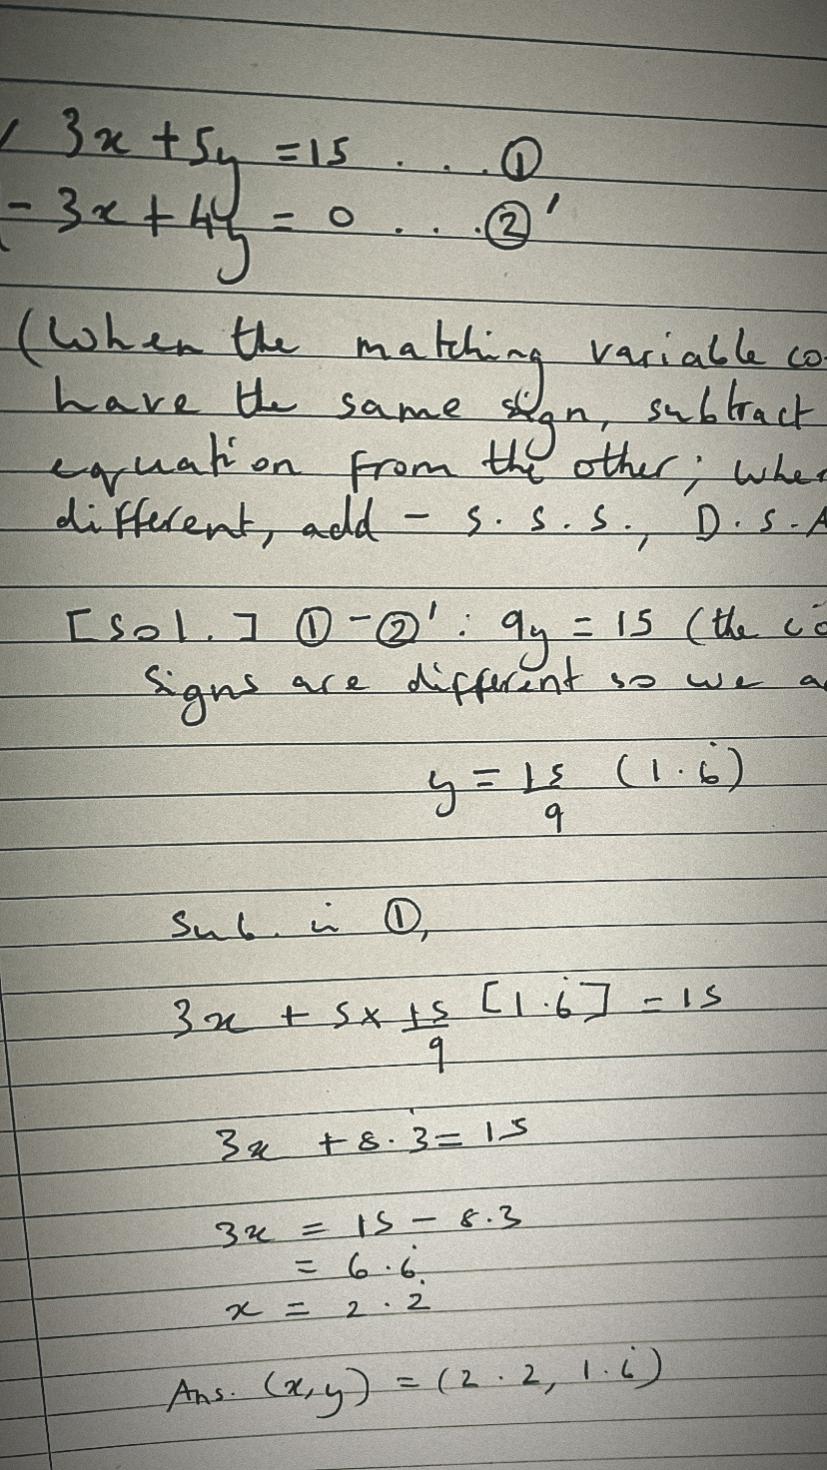 3x + 5y = 15 . . . ①
- 3x + 4y = 0 . . . ②'
(When the matching variable co
have the same sign, subtract
equation from the other; when
different, add - S.S.S., D.S.A
[Sol.] ① - ②' : 9y = 15 (the co
signs are different so we a
y = 15/9 (1.6̇)
Sub. in ①,
3x + 5 × 15/9 [1.6̇] = 15
3x + 8.3̇ = 15
3x = 15 - 8.3
= 6.6̇
x = 2.2̇
Ans. (x, y) = (2.2, 1.6̇)